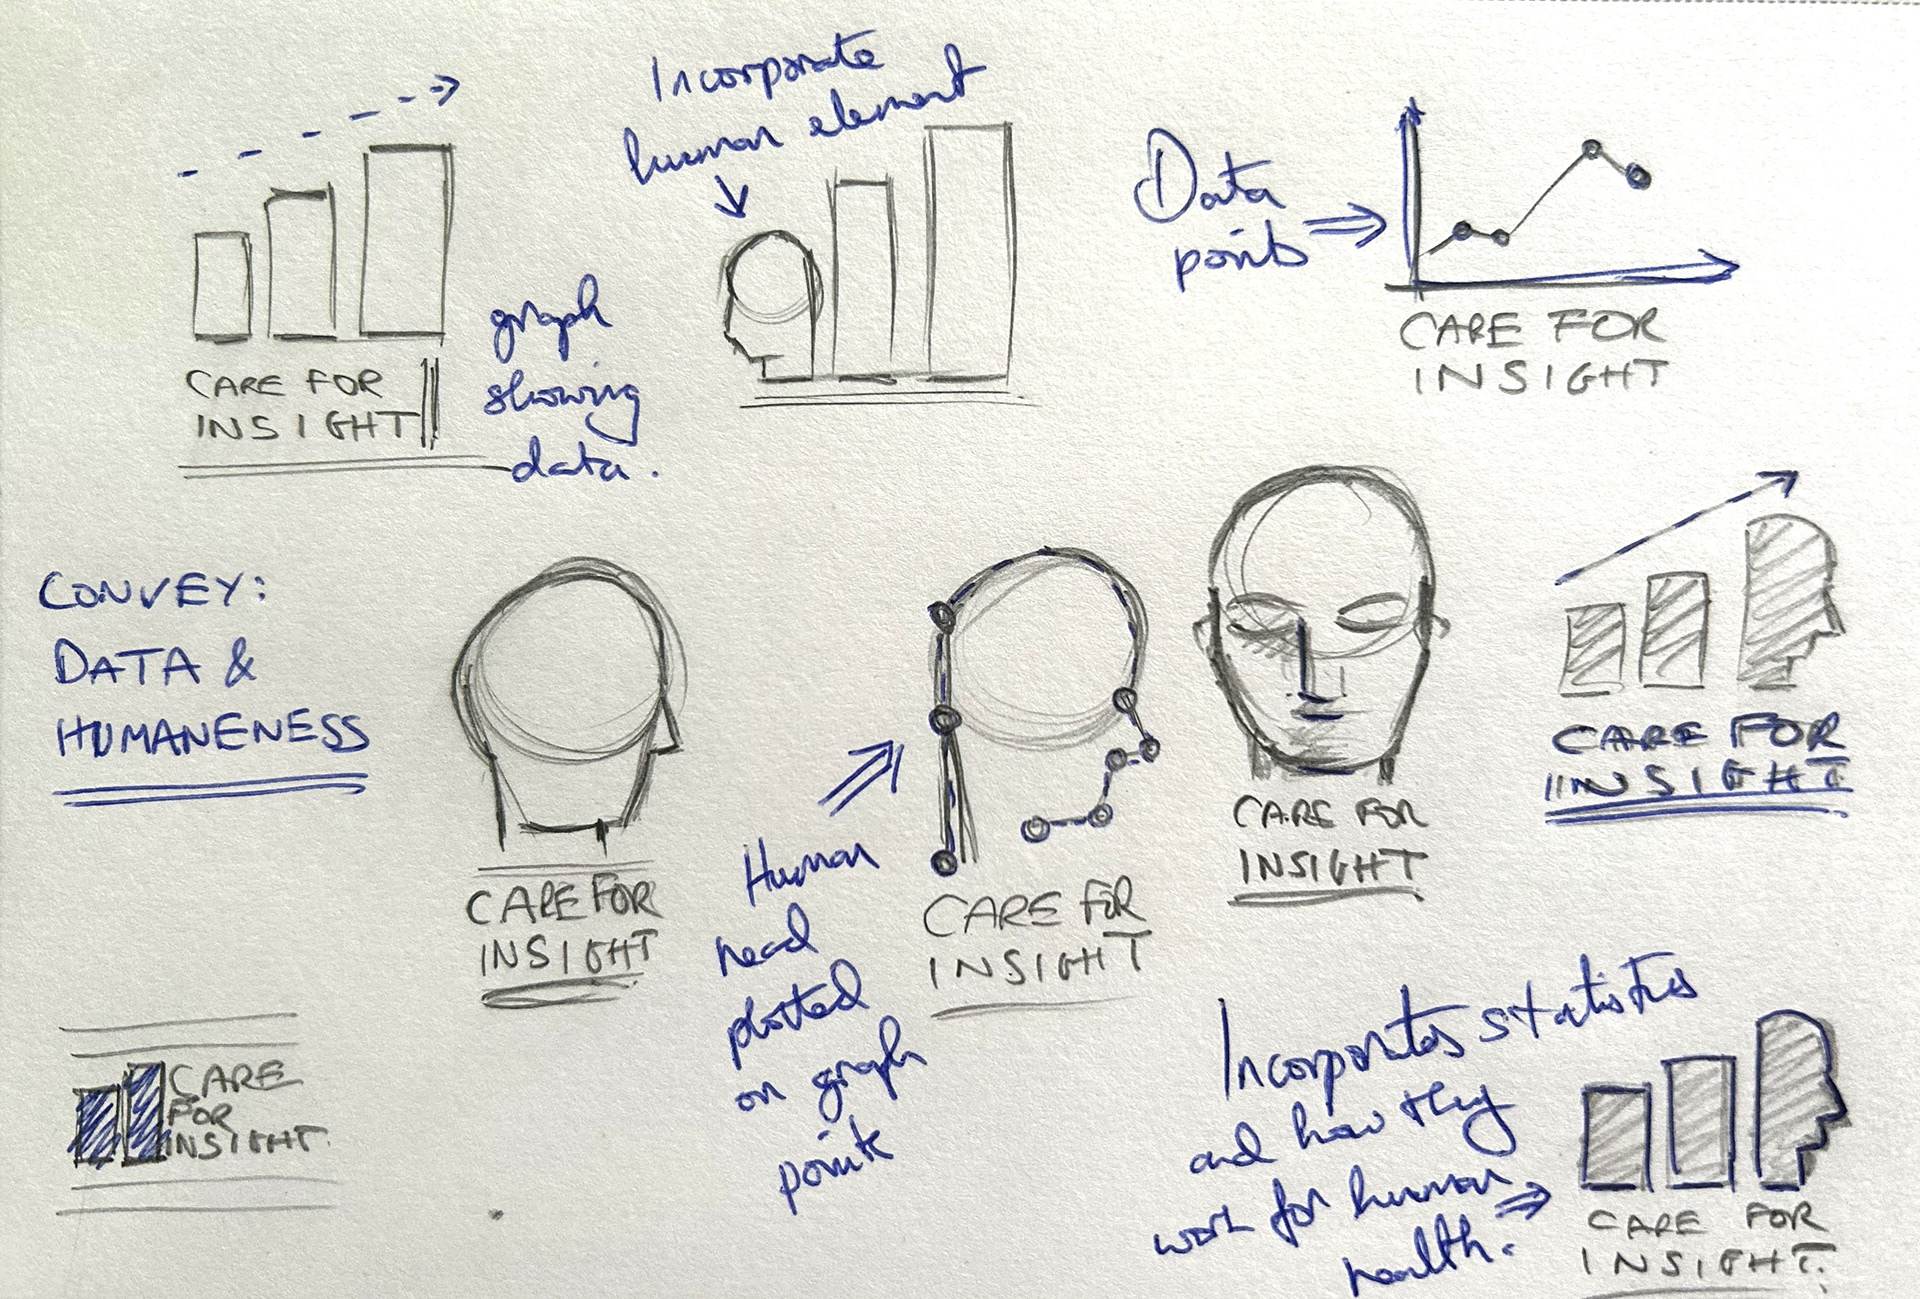 Incorporate
human element
CARE FOR
INSIGHT
graph
showing
data.
Data
points
CARE FOR
INSIGHT
CONVEY:
DATA &
HUMANENESS
CARE FOR
INSIGHT
Human
head
plotted
on graph
points
CARE FOR
INSIGHT
CARE FOR
INSIGHT
CARE FOR
INSIGHT
CARE
FOR
INSIGHT
Incorporates statistics
and how they
work for human
health.
CARE FOR
INSIGHT.